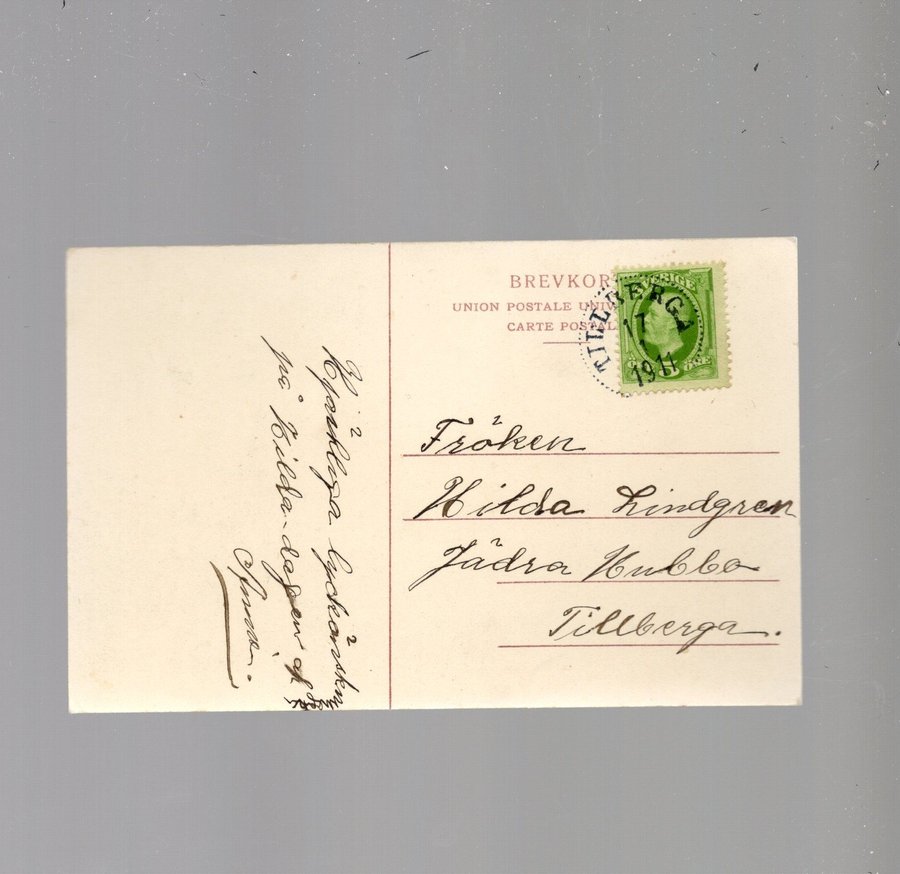 BREVKOR
UNION POSTALE UNIV
CARTE POSTAL
SVERIGE
ÖRE
TILLBERGA
17
1
1911
Fröken
Hilda Lindgren
Jädra Hubbo
Tillberga.
Hjärtliga lyckönskn
på Hilda-dagen af